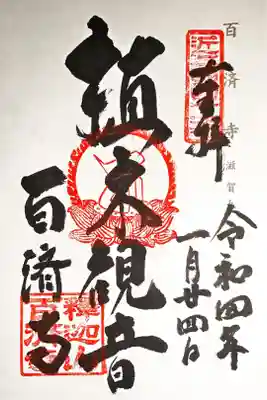 百済寺 滋賀
奉拝
令和四年
一月廿四日
植木観音
百済寺
釋迦山
百済寺